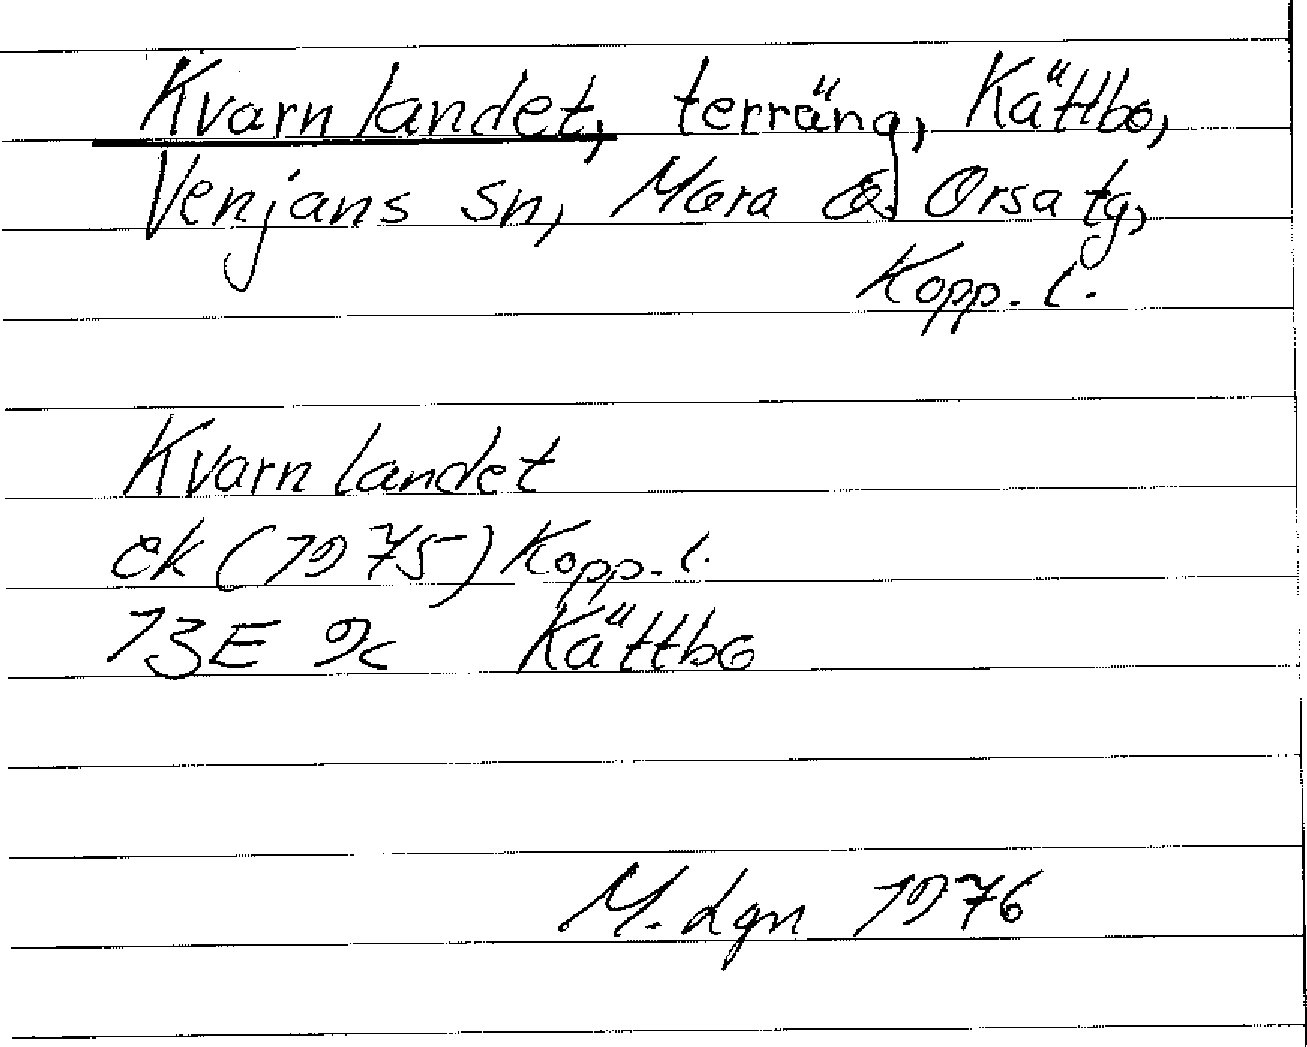 Kvarnlandet, terräng, Kättbo,
Venjans sn, Mora & Orsa tg,
Kopp. l.
Kvarnlandet
ek (1975) Kopp. l.
13E 9c Kättbo
M. Lgn 1976